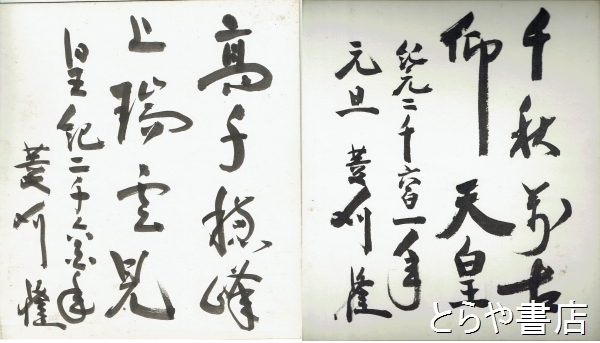 高千穂峰
上瑞雲見
皇紀二千六百年
菱刈隆
千秋万古
仰 天皇
紀元二千六百一年
元旦 菱刈隆
とらや書店